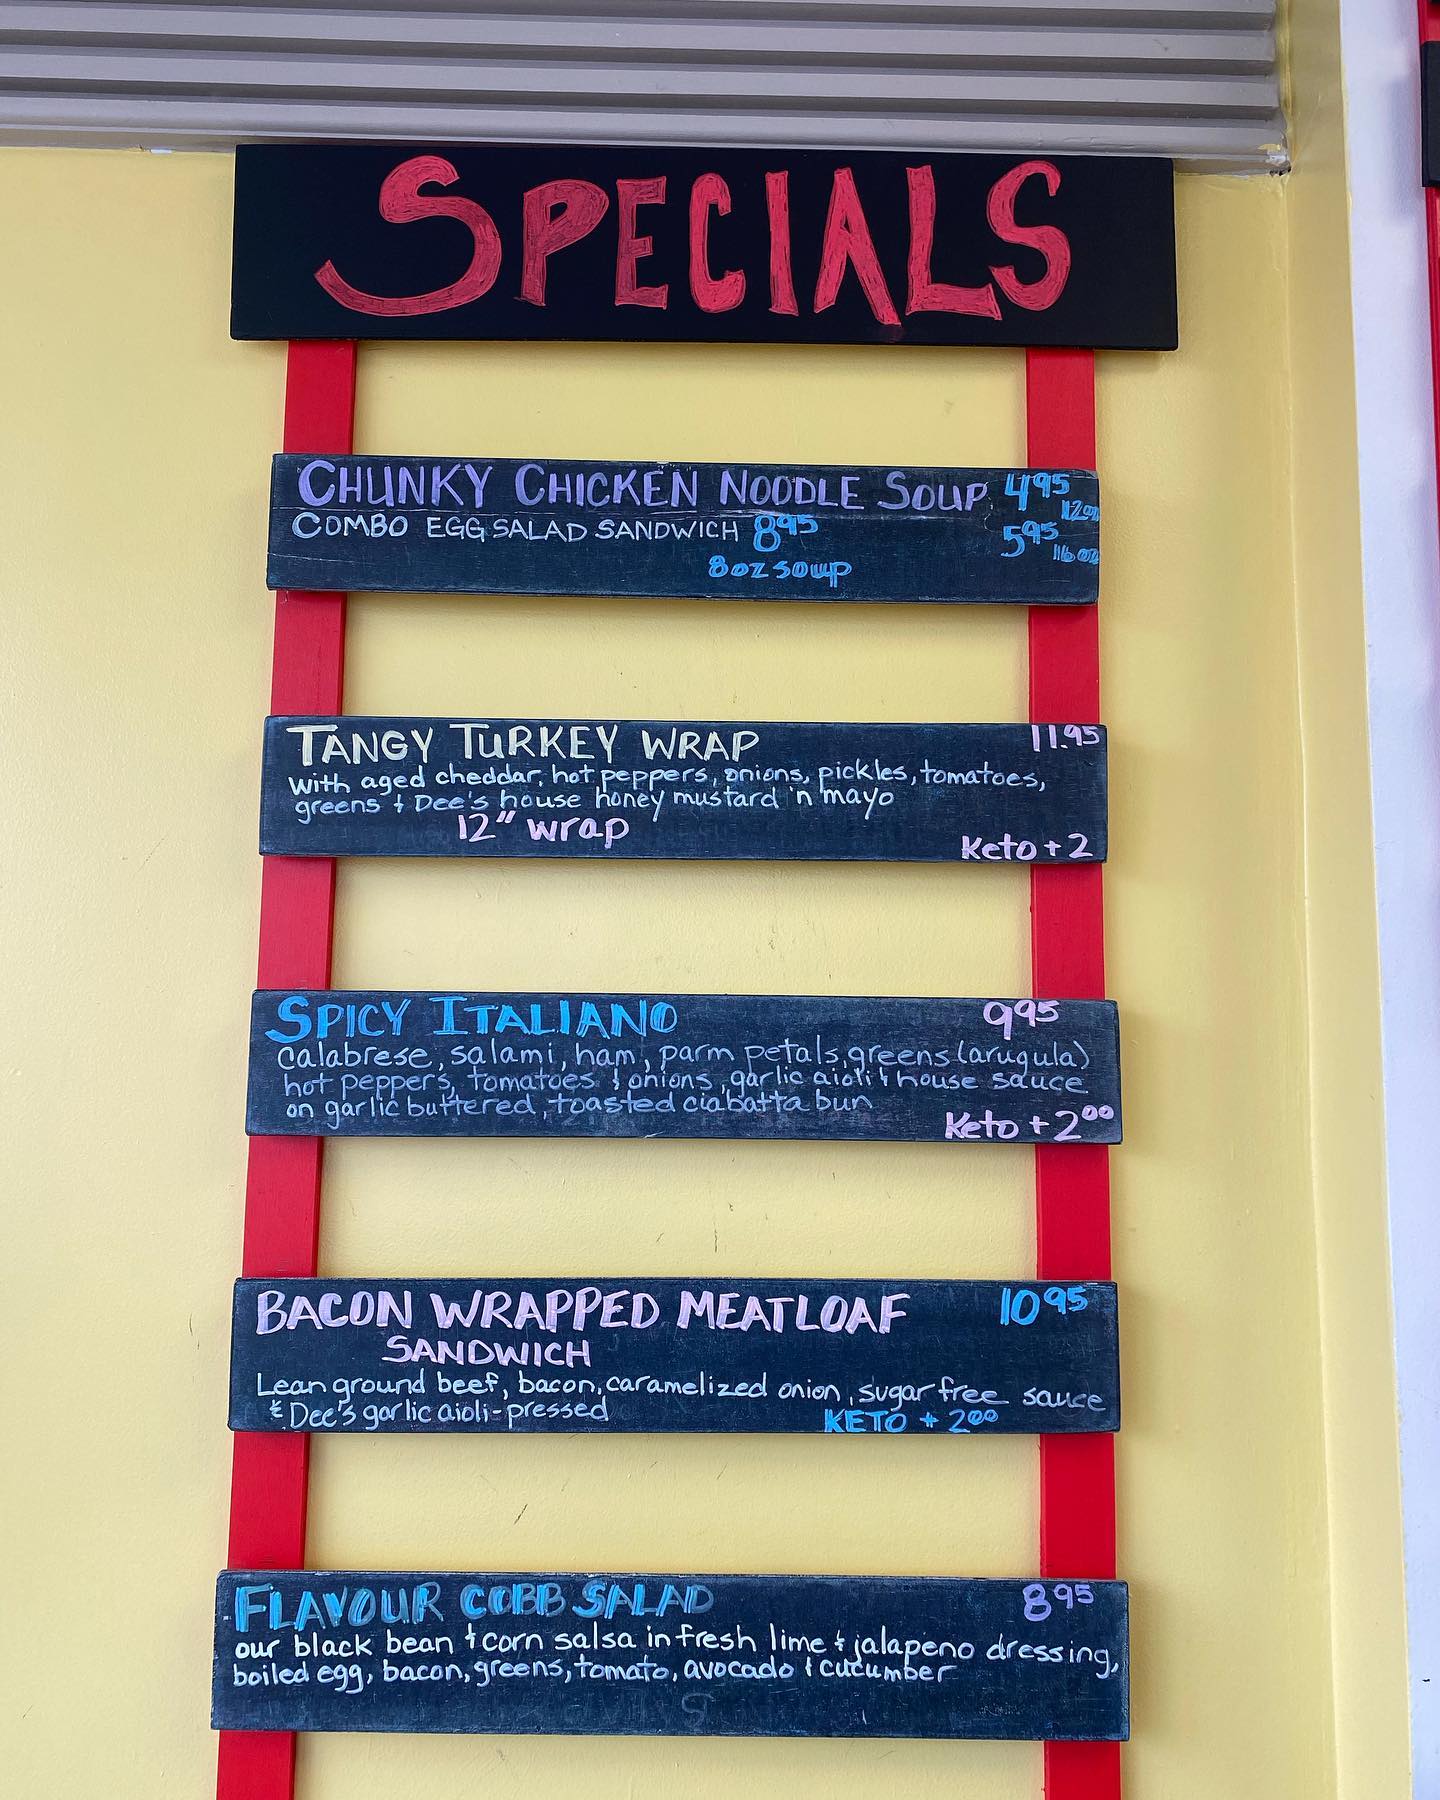 SPECIALS
CHUNKY CHICKEN NOODLE SOUP 4.95 12oz
COMBO EGG SALAD SANDWICH 8.95 5.95 16oz
8oz soup
TANGY TURKEY WRAP 11.95
with aged cheddar, hot peppers, onions, pickles, tomatoes,
greens & Dee's house honey mustard 'n mayo
12" wrap
Keto + 2
SPICY ITALIANO 9.95
calabrese, salami, ham, parm petals, greens (arugula)
hot peppers, tomatoes & onions, garlic aioli & house sauce
on garlic buttered, toasted ciabatta bun
Keto + 2.00
BACON WRAPPED MEATLOAF 10.95
SANDWICH
Lean ground beef, bacon, caramelized onion, sugar free sauce
& Dee's garlic aioli-pressed KETO + 2.00
FLAVOUR COBB SALAD 8.95
our black bean & corn salsa in fresh lime & jalapeno dressing,
boiled egg, bacon, greens, tomato, avocado & cucumber